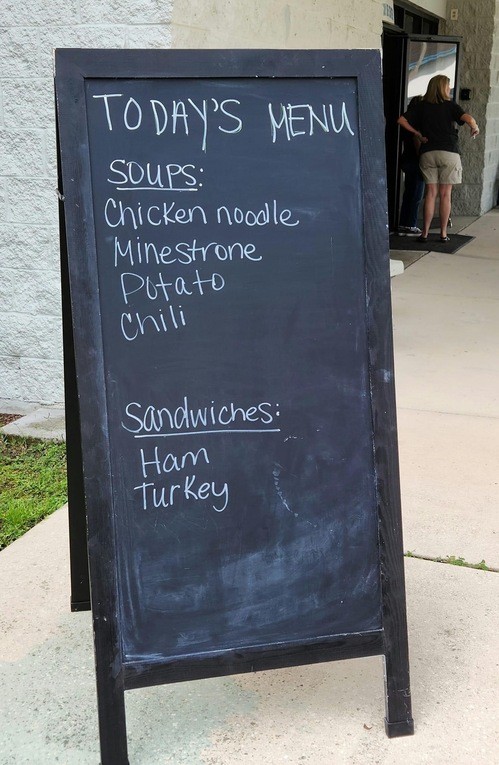 TODAY'S MENU
SOUPS:
Chicken noodle
Minestrone
Potato
Chili
Sandwiches:
Ham
Turkey